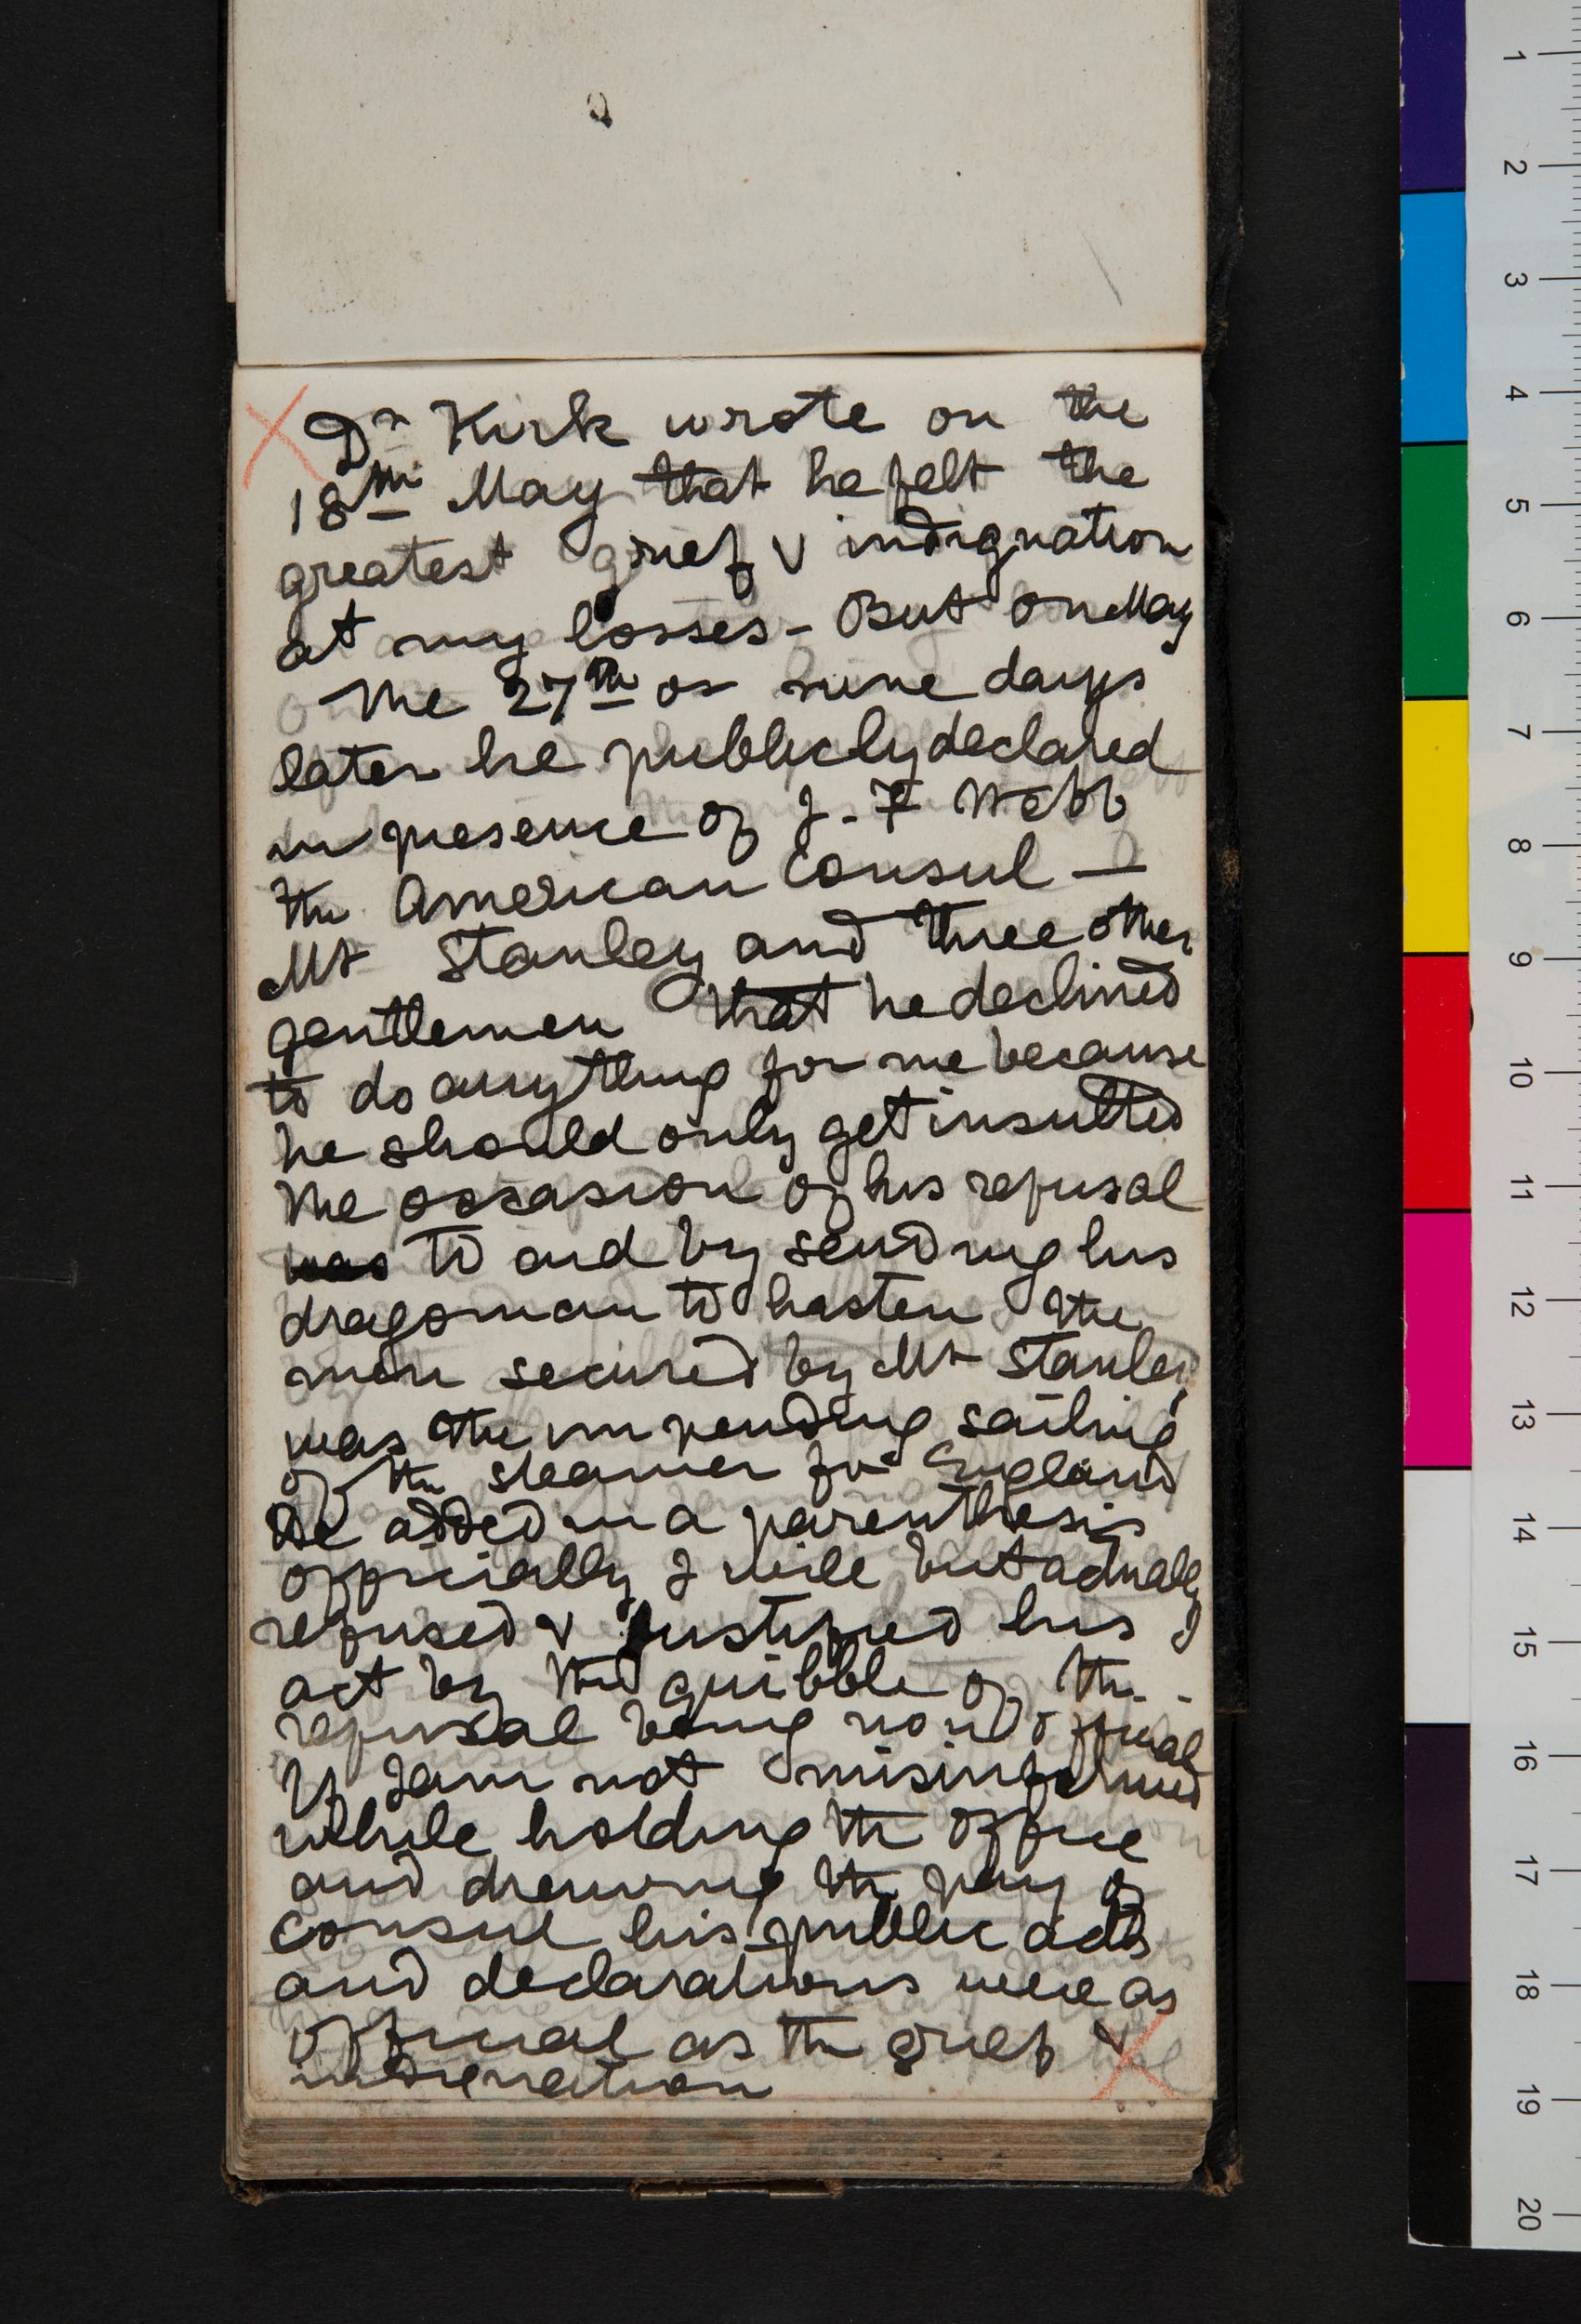 Dr Kirk wrote on the
18th May that he felt the
greatest grief & indignation
at my losses - But on May
the 27th or nine days
later he publicly declared
in presence of J. F Webb
the American Consul -
Mr Stanley and three other
gentlemen that he declined
to do anything for me because
he should only get insulted
The occasion of his refusal
was to aid by sending his
dragoman to hasten the
men secured by Mr Stanley
was the impending sailing
of the steamer for England
He added in a parenthesis
officially I will but actually
refused & justified his
act by the quibble of the
refusal being non official
If I am not misinformed
while holding the office
and drawing the pay of
consul his public acts
and declarations were as
official as the grief &
indignation
1
2
3
4
5
6
7
8
9
10
11
12
13
14
15
16
17
18
19
20